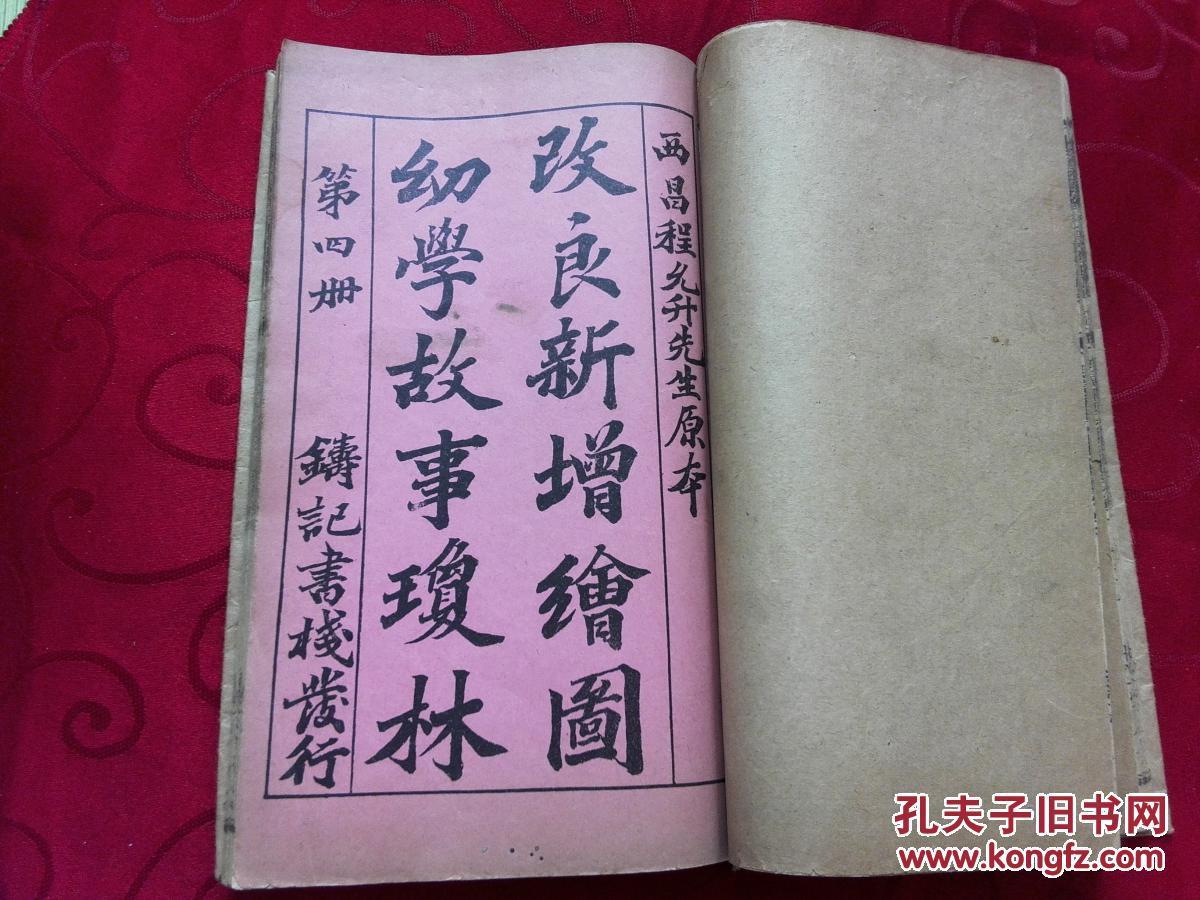 西昌程允升先生原本
改良新增繪圖
幼學故事瓊林
第四册
鑄記書棧發行
孔夫子旧书网
www.kongfz.com